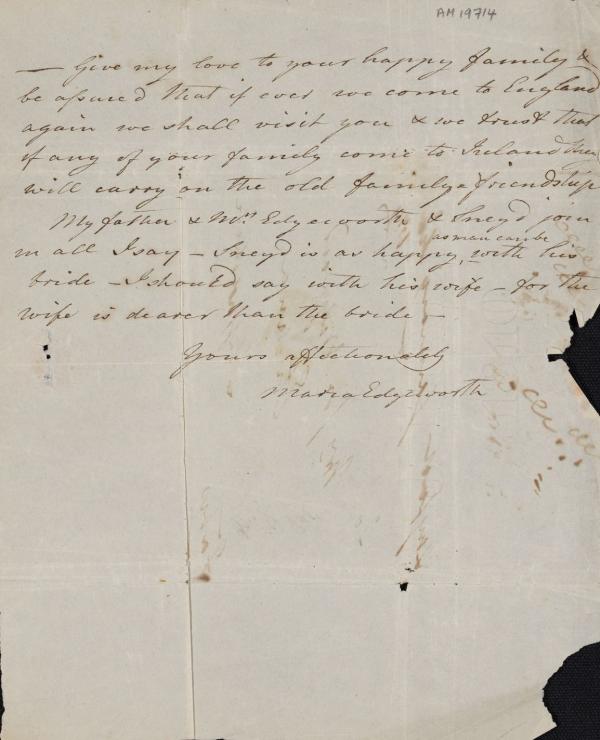 AM 19714
— Give my love to your happy family &
be assured that if ever we come to England
again we shall visit you & we trust that
if any of your family come to Ireland they
will carry on the old family friendship
My father & Mrs Edgeworth & Sneyd join
in all I say – Sneyd is as happy as man can be with his
bride – I should say with his wife – for the
wife is dearer than the bride –
Yours affectionately
Maria Edgeworth